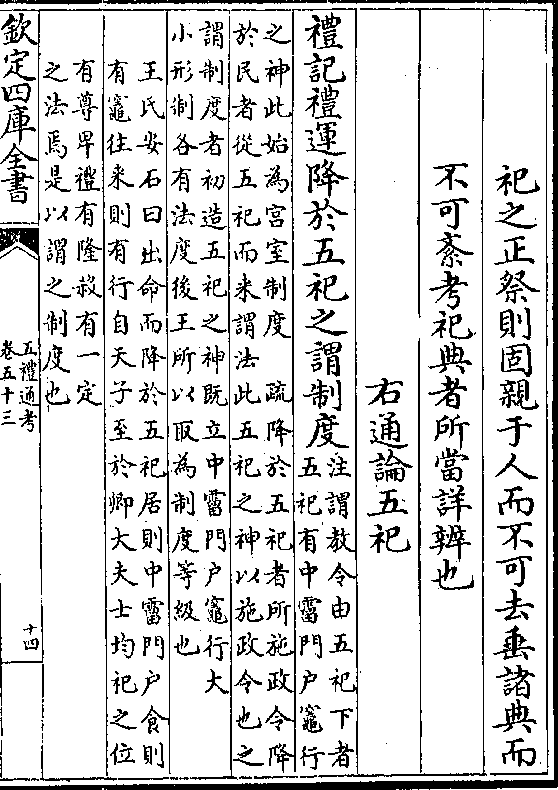 祀之正祭則固親于人而不可去垂諸典而
不可紊考祀典者所當詳辨也
右通論五祀
禮記禮運降於五祀之謂制度注謂教令由五祀下者
五祀有中霤門户竈行
之神此始為宫室制度 疏降於五祀者所施政令降
於民者從五祀而来謂法此五祀之神以施政令也之
謂制度者初造五祀之神既立中霤門户竈行大
小形制各有法度後王所以取為制度等級也
王氏安石曰出命而降於五祀居則中霤門户食則
有竈往来則有行自天子至於卿大夫士均祀之位
有尊卑禮有隆殺有一定
之法焉是以謂之制度也
欽定四庫全書
五禮通考
卷五十三
十四